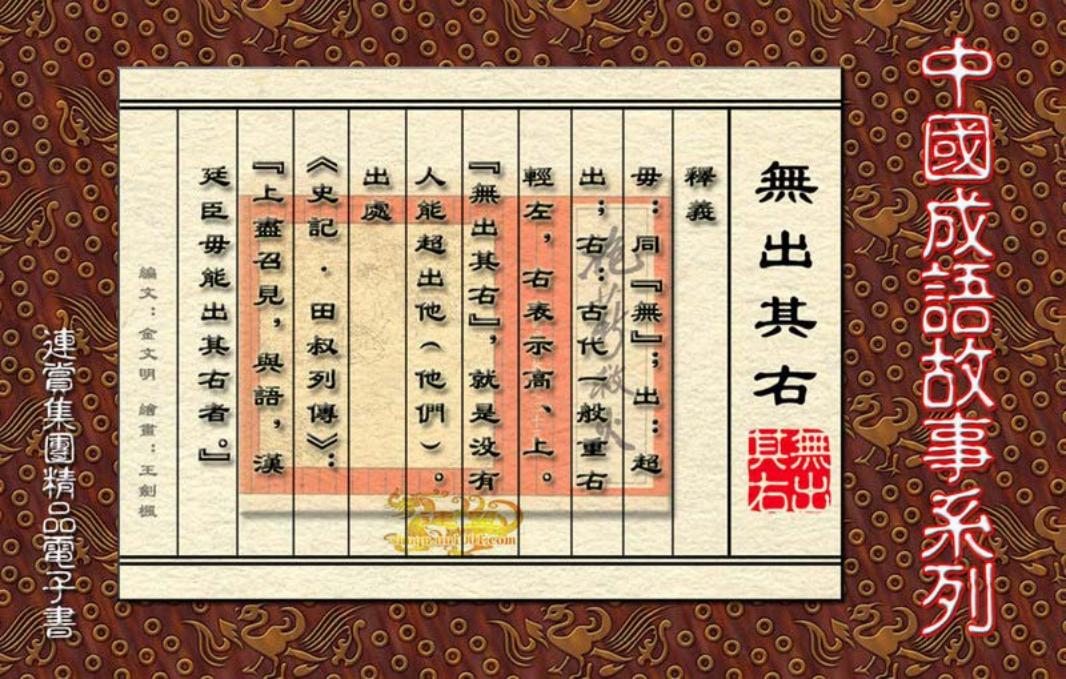 中國成語故事系列
無出其右
無出
其右
釋義
毋：同『無』；出：超
出；右：古代一般重右
輕左，右表示高、上。
『無出其右』，就是没有
人能超出他（他們）。
出處
《史記．田叔列傳》：
『上盡召見，與語，漢
廷臣毋能出其右者。』
編文：金文明 繪畫：王劍楓
連賞集團精品電子書